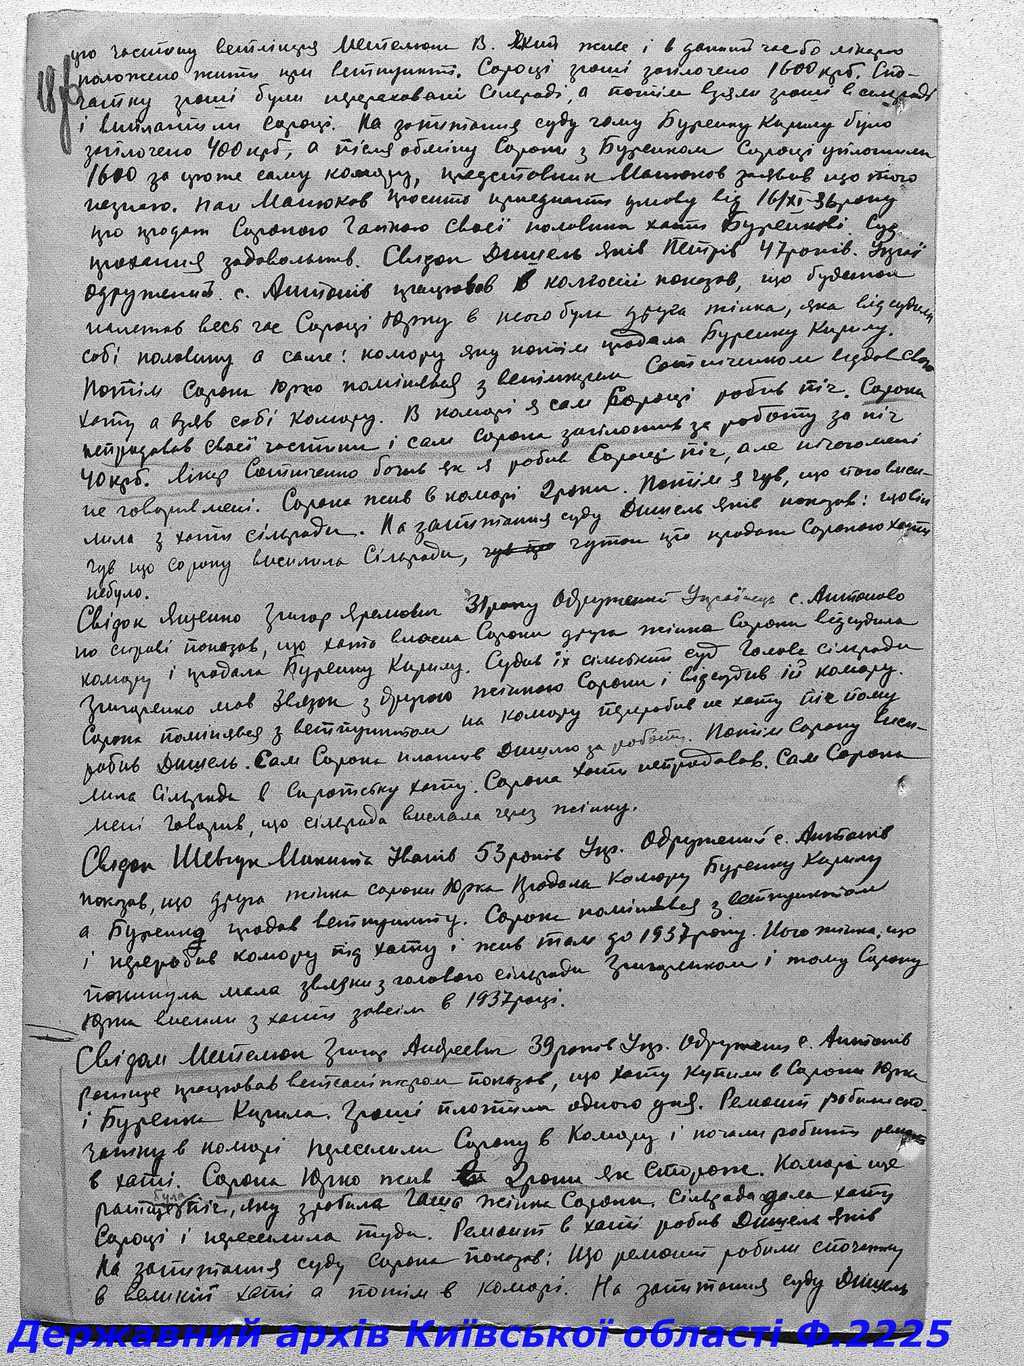 цю частину ветлікаря Метелюк В. Який живе і в даний час бо лікарю
18
положено жити при ветпункті. Сороці гроші заплочено 1600 крб. Спо-
чатку гроші були перераховані Сільраді, а потім взяли гроші в сільраді
і виплатили Сороці. На запитання суду чому Буренку Кирилу було
заплочено 400 крб, а після обміну Сороки з Буренком Сороці уплотили
1600 за цюже саму комору, представник Манюков заявив що того
незнаю. Пав Манюков просить приєднати умову від 16/XI-36 року
про продаж Сорокою Гапкою своєї половини хати Буренкові. Суд
прохання задовольнив. Свідок Дишель Яків Петрів 47 років. Украї
одружений. с. Антонів працював в колгоспі показав, що будинок
належав весь час Сороці Юрку в нього була друга жінка, яка відсудила
собі половину а саме: комору яку потім продала Буренку Кирилу.
Потім Сорока Юрко помінявся з ветлікарем Сотніченком віддав свою
хату а взяв собі комору. В коморі я сам Сороці робив піч. Сорока
непродавав своєї частини і сам Сорока заплотив за роботу за піч
40 крб. Лікар Сотніченко бачив як я робив Сороці піч, але нічого мені
не говорив мені. Сорока жив в коморі 2 роки. Потім я чув, що його висе-
лила з хати сільрада. На запитання суду Дишель Яків показав: що він
чув що сороку виселила Сільрада, чув що чуток про продаж Сорокою хати
небуло.
Свідок Яценко Григор Яремович 31 року Одружений Українець с. Антоново
по справі показав, що хата власна Сороки друга жінка Сороки відсудила
комору і продала Буренку Кирилу. Судив їх сільський суд Голова Сільради
Григоренко мав звязок з другою жінкою Сороки і відсудив їй комору.
Сорока помінявся з ветпунктом на комору переробив не хату піч йому
робив Дишель. Сам Сорока платив Дишлю за роботу. Потім Сороку висе-
лила Сільрада в сиротську хату. Сорока хати непродавав. Сам Сорока
мені говорив, що сільрада вислала через жінку.
Свідок Шевчук Микита Іванів 53 років Укр. Одружений с. Антонів
показав, що друга жінка сороки Юрка продала комору Буренку Кирилу
а Буренко продав ветпункту. Сорока помінявся з ветпунктом
і переробив комору під хату і жив там до 1937 року. Його жінка, що
покинула мала звязки з головою сільради Григоренком і тому Сороку
Юрка вигнали з хати зовсім в 1937 році.
Свідок Метелюк Григор Андреєвич 39 років Укр. Одружений с. Антонів
раніше працював ветсанітаром показав, що хату купили в Сороки Юрка
і Буренка Кирила. Гроші платили одного дня. Ремонт робили спо-
чатку в коморі переселили Сороку в комору і почали робити ремонт
в хаті. Сорока Юрко жив 2 роки як сторож. Комора ще
раніше була піч, яку зробила Гаша жінка Сороки. Сільрада дала хату
Сороці і переселила туди. Ремонт в хаті робив Дишель Яків
На запитання суду Сорока показав: Що ремонт робили спочатку
в великій хаті а потім в коморі. На запитання суду Дишель
Державний архів Київської області Ф.2225